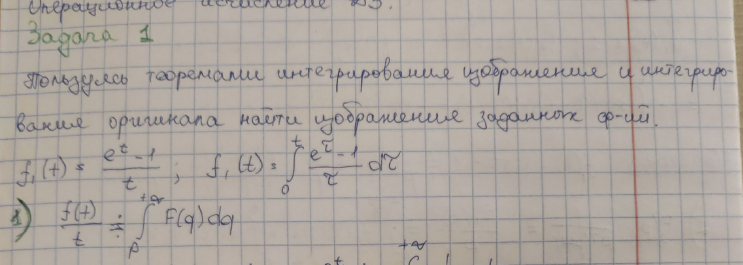 Операционное исчисление ДЗ.
Задача 1
Пользуясь теоремами интегрирования изображения и интегриро-
вания оригинала найти изображения заданных ф-ий.
f₁(t) = (e^t - 1)/t ; f₁(t) = ∫₀^t (e^τ - 1)/τ dτ
1) f(t)/t ≑ ∫_p^{+∞} F(q)dq